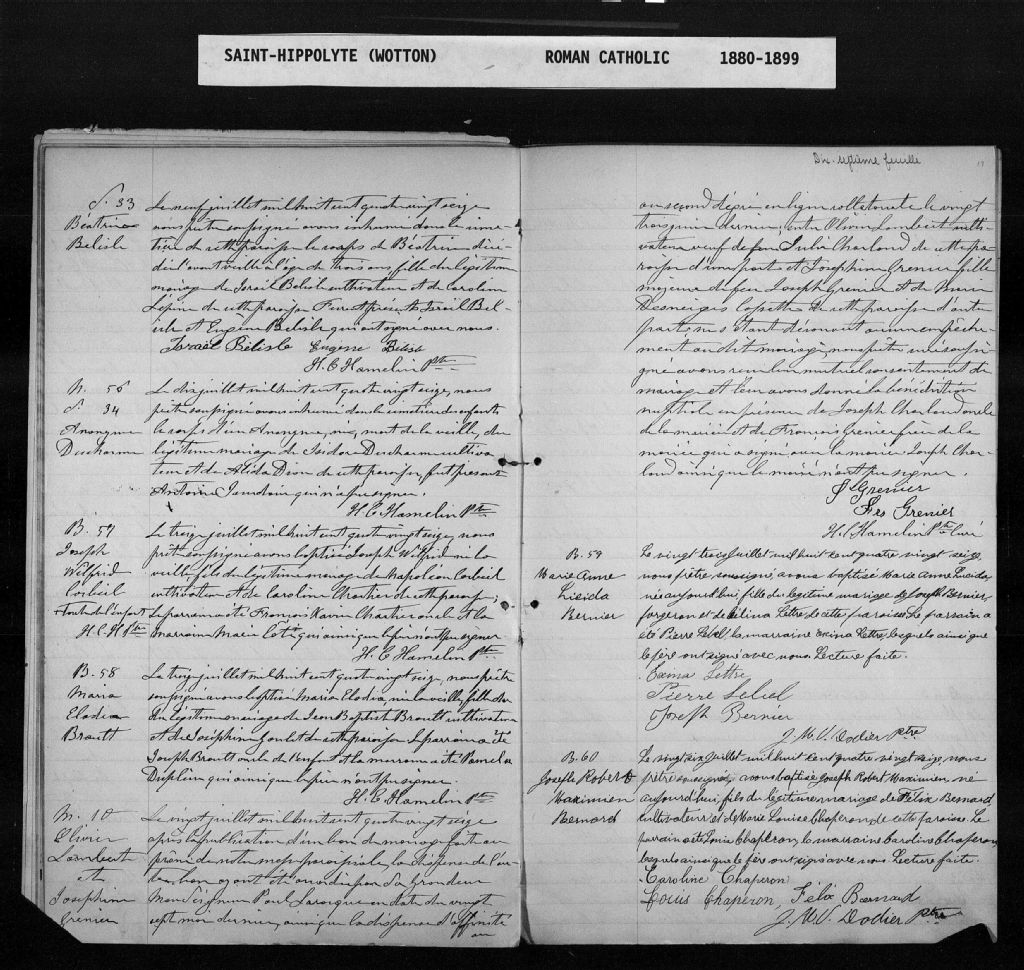 SAINT-HIPPOLYTE (WOTTON) ROMAN CATHOLIC 1880-1899
S. 33
Béatrice
Bélisle
Le neuf juillet mil huit cent quatre vingt seize
nous prêtre soussigné avons inhumé dans le cime-
tière de cette paroisse le corps de Béatrice décé-
dée l'avant veille à l'âge de trois ans fille du légitime
mariage de Israël Bélisle cultivateur et de Caroline
Lépine de cette paroisse Furent présents Israël Bél-
isle et Eugène Bélisle qui ont signé avec nous.
Israël Bélisle Eugene Bélisle
H. C. Hamelin Ptre
N. 56
S. 34
Anonyme
Ducharme
Le dix juillet mil huit cent quatre vingt seize, nous
prêtre soussigné avons inhumé dans le cimetière des enfants
le corps d'un Anonyme, né, mort de la veille, du
légitime mariage de Isidore Ducharme cultiva-
teur et de Alida Dion de cette paroisse, fut présent
Antoine qui n'a pu signer.
H. C. Hamelin Ptre
B. 57
Joseph
Wilfrid
Corbeil
H. C. H. Ptre
Le treize juillet mil huit cent quatre vingt seize, nous
prêtre soussigné avons baptisé Joseph Wilfrid né la
veille fils du légitime mariage de Napoléon Corbeil
cultivateur et de Caroline Chartier de cette paroisse;
Le parrain a été François Xavier Chartier oncle et la
marraine Marie Côté qui ainsi que le père n'ont pu signer
H. C. Hamelin Ptre
B. 58
Maria
Elodia
Brault
Le treize juillet mil huit cent quatre vingt seize, nous prêtre
soussigné avons baptisé Maria Elodia, née la veille, fille du
du légitime mariage de Jean Baptiste Brault cultivateur
et de Joséphine Goulet de cette paroisse Le parrain a été
Joseph Brault oncle de l'enfant et la marraine a été Pamela
qui ainsi que le père n'ont pu signer.
H. C. Hamelin Ptre
M. 10
Olivier
Lambert
et
Joséphine
Grenier
Le vingt juillet mil huit cent quatre vingt seize
après la publication d'un ban de mariage fait au
prône de notre messe paroissiale, la dispense de l'au-
tre ban ayant été accordée par Sa Grandeur
Monseigneur Paul Larocque en date du vingt
sept mai dernier, ainsi que la dispense d'affinité
au
Dix-septième feuille
17
au second degré en ligne collatérale le vingt
trois juin dernier; entre Olivier Lambert culti-
vateur veuf de feu Julie Charland de cette pa-
roisse d'une part et Joséphine Grenier fille
majeure de feu Joseph Grenier et de Marie
Desneiges de cette paroisse d'autre
part; ne s'étant découvert aucun empêche-
ment au dit mariage, nous prêtre curé soussi-
gné avons reçu leur mutuel consentement de
mariage et leur avons donné la bénédiction
nuptiale en présence de Joseph Charland oncle
de la mariée et de François Grenier frère de la
mariée qui a signé avec la mariée Joseph Char-
land ainsi que le marié n'ont pu signer
Grenier
Frs Grenier
H. C. Hamelin Ptre Curé
B. 59
Marie Anne
Lucida
Bernier
Le vingt trois juillet mil huit cent quatre vingt seize
nous prêtre soussigné, avons baptisé Marie Anne Lucida
née aujourd'hui, fille du légitime mariage de Joseph Bernier
forgeron et de Célina Lettre de cette paroisse. Le parrain a
été Pierre Lebel la marraine Exina Lettre, lesquels ainsi que
le père ont signé avec nous Lecture faite.
Exina Lettre
Pierre Lebel
Joseph Bernier
J. M. V. Dodier Ptre
B. 60
Joseph Robert
Maximien
Bernard
Le vingt six juillet mil huit cent quatre vingt seize nous
prêtre soussigné, avons baptisé Joseph Robert Maximien né
aujourd'hui, fils du légitime mariage de Félix Bernard
cultivateur et de Marie Louise Chaperon de cette paroisse Le
parrain a été Louis Chaperon, la marraine Caroline Chaperon
lesquels ainsi que le père ont signé avec nous Lecture faite.
Caroline Chaperon
Louis Chaperon, Félix Bernard
J. M. V. Dodier Ptre